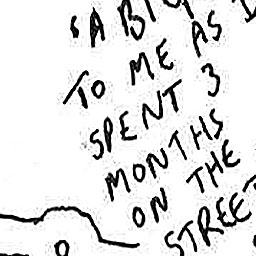 'A BIT
TO ME AS I
SPENT 3
MONTHS
ON THE
STREET